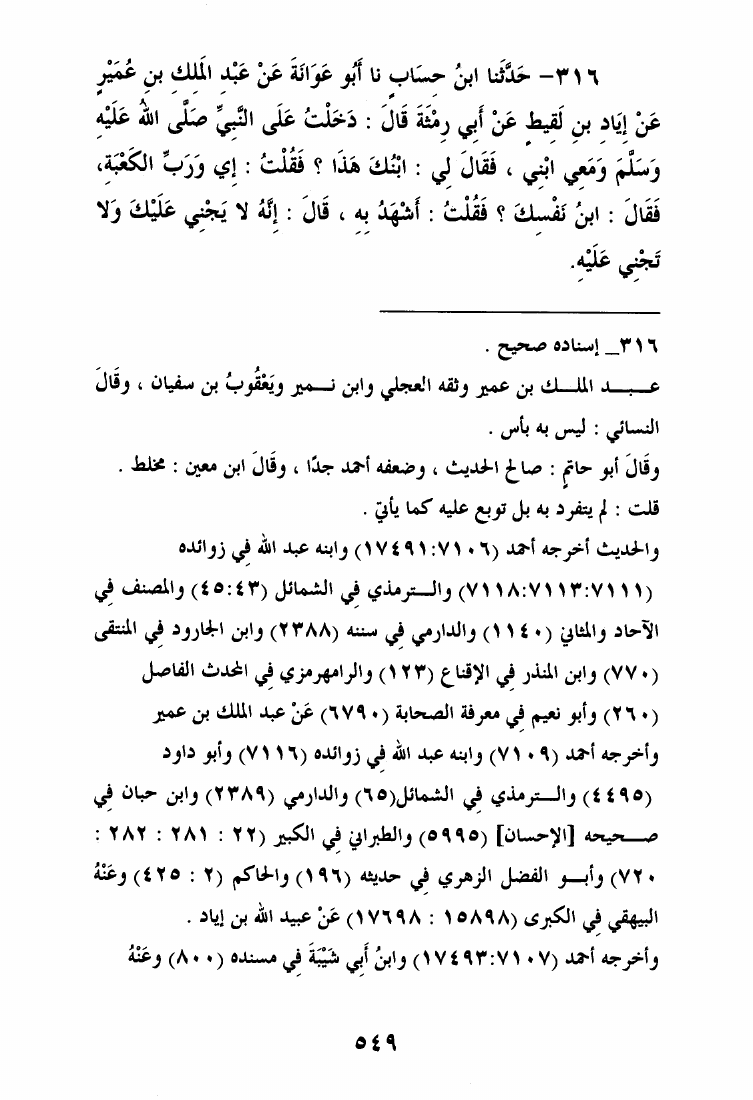 ٣١٦- حَدَّثَنا ابنُ حِسَابٍ نا أَبُو عَوَانَةَ عَنْ عَبْدِ المَلِكِ بنِ عُمَيْرٍ
عَنْ إِيَادِ بنِ لَقِيطٍ عَنْ أَبِي رِمْثَةَ قَالَ : دَخَلْتُ عَلَى النَّبِيِّ صَلَّى اللهُ عَلَيْهِ
وَسَلَّمَ وَمَعِي ابْنِي ، فَقَالَ لِي : ابْنُكَ هَذَا ؟ فَقُلْتُ : إِي وَرَبِّ الكَعْبَةِ،
فَقَالَ : ابنُ نَفْسِكَ ؟ فَقُلْتُ : أَشْهَدُ بِهِ ، قَالَ : إِنَّهُ لا يَجْنِي عَلَيْكَ وَلا
تَجْنِي عَلَيْهِ.
٣١٦_ إسناده صحيح .
عبـد الملـك بن عمير وثقه العجلي وابن نـمير ويَعْقُوبُ بن سفيان ، وقَالَ
النسائي : ليس به بأس .
وقَالَ أبو حاتم : صالح الحديث ، وضعفه أحمد جدًا ، وقَالَ ابن معين : مخلط .
قلت : لم يتفرد به بل توبع عليه كما يأتي .
والحديث أخرجه أحمد (٧١٠٦:١٧٤٩١) وابنه عبد الله فِي زوائده
(٧١١١:٧١١٣:٧١١٨) والـترمذي فِي الشمائل (٤٣:٤٥) والمصنف فِي
الآحاد والمثاني (١١٤٠) والدارمي فِي سننه (٢٣٨٨) وابن الجارود فِي المنتقى
(٧٧٠) وابن المنذر فِي الإقناع (١٢٣) والرامهرمزي فِي المحدث الفاصل
(٢٦٠) وأبو نعيم فِي معرفة الصحابة (٦٧٩٠) عَنْ عبد الملك بن عمير
وأخرجه أحمد (٧١٠٩) وابنه عبد الله فِي زوائده (٧١١٦) وأبو داود
(٤٤٩٥) والـترمذي فِي الشمائل(٦٥) والدارمي (٢٣٨٩) وابن حبان فِي
صـحيحه [الإحسان] (٥٩٩٥) والطبراني فِي الكبير (٢٢ : ٢٨١ : ٢٨٢ :
٧٢٠) وأبـو الفضل الزهري فِي حديثه (١٩٦) والحاكم (٢ : ٤٢٥) وعَنْهُ
البيهقي فِي الكبرى (١٥٨٩٨ : ١٧٦٩٨) عَنْ عبيد الله بن إياد .
وأخرجه أحمد (٧١٠٧:١٧٤٩٣) وابنُ أَبِي شَيْبَةَ فِي مسنده (٨٠٠) وعَنْهُ
٥٤٩